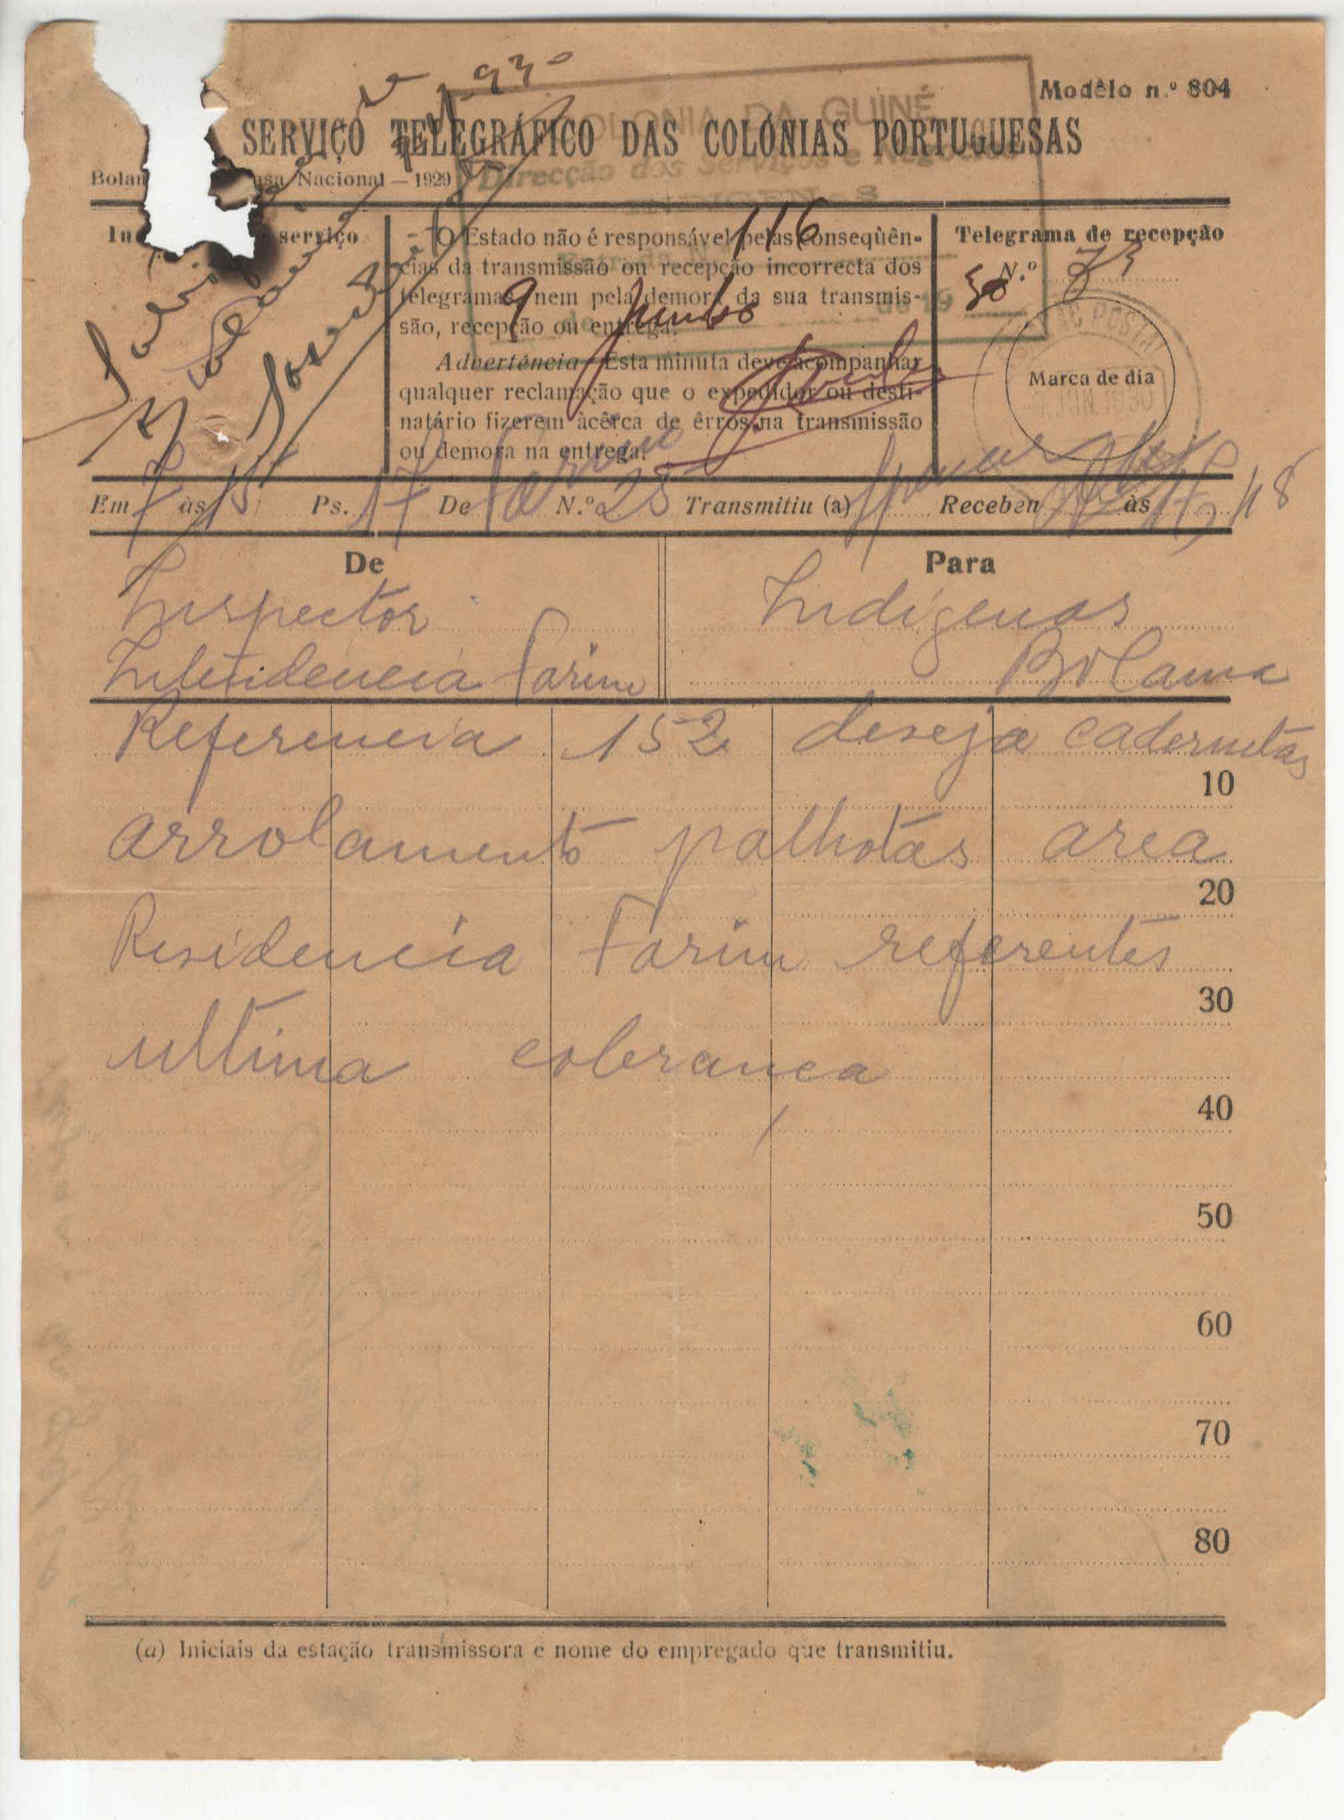 Modêlo n.º 804
SERVIÇO TELEGRÁFICO DAS COLÓNIAS PORTUGUESAS
COLONIA DA GUINÉ
Direcção dos Serviços e Negocios
Nacional — 1929
serviço
O Estado não é responsável pelas conseqùên-
cias da transmissão ou recepção incorrecta dos
telegramas nem pela demora da sua transmis-
são, recepção ou entrega.
Advertência—Esta minuta deve acompanhar
qualquer reclamação que o expedidor ou desti-
natário fizerem àcêrca de êrros na transmissão
ou demora na entrega.
116
9 Junho
de 19 30
Telegrama de recepção
N.º 73
Marca de dia
Em 7 às 15 Ps. 17 De Farim N.º 28 Transmitiu (a) Recebeu às
De
Para
Inspector
Intendencia Farim
Indigenas
Bolama
Referencia 152 deseja cadernetas
10
arrolamento palhotas area
20
Residencia Farim referentes
30
ultima cobrança
40
50
60
70
80
(a) Iniciais da estação transmissora e nome do empregado que transmitiu.